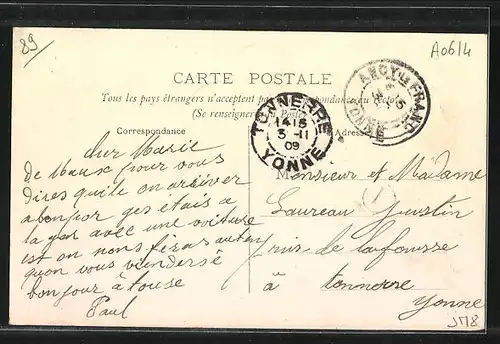 89
A0614
CARTE POSTALE
Tous les pays étrangers n'acceptent pas la correspondance au recto
(Se renseigner à la Poste)
Correspondance
Adresse
TONNERRE
1415
3-11
09
YONNE
ANCY-LE-FRANC
YONNE
cher Marie
de Maux pour vous
dires quile on arriver
a bon por ges etais a
la gar avec une voiture
est on nous feras auten
quon vous viendersé
bonjour à touse
Paul
Monsieur et Madame
Laureau Justin
1
à tonnerre
Yonne
JM8